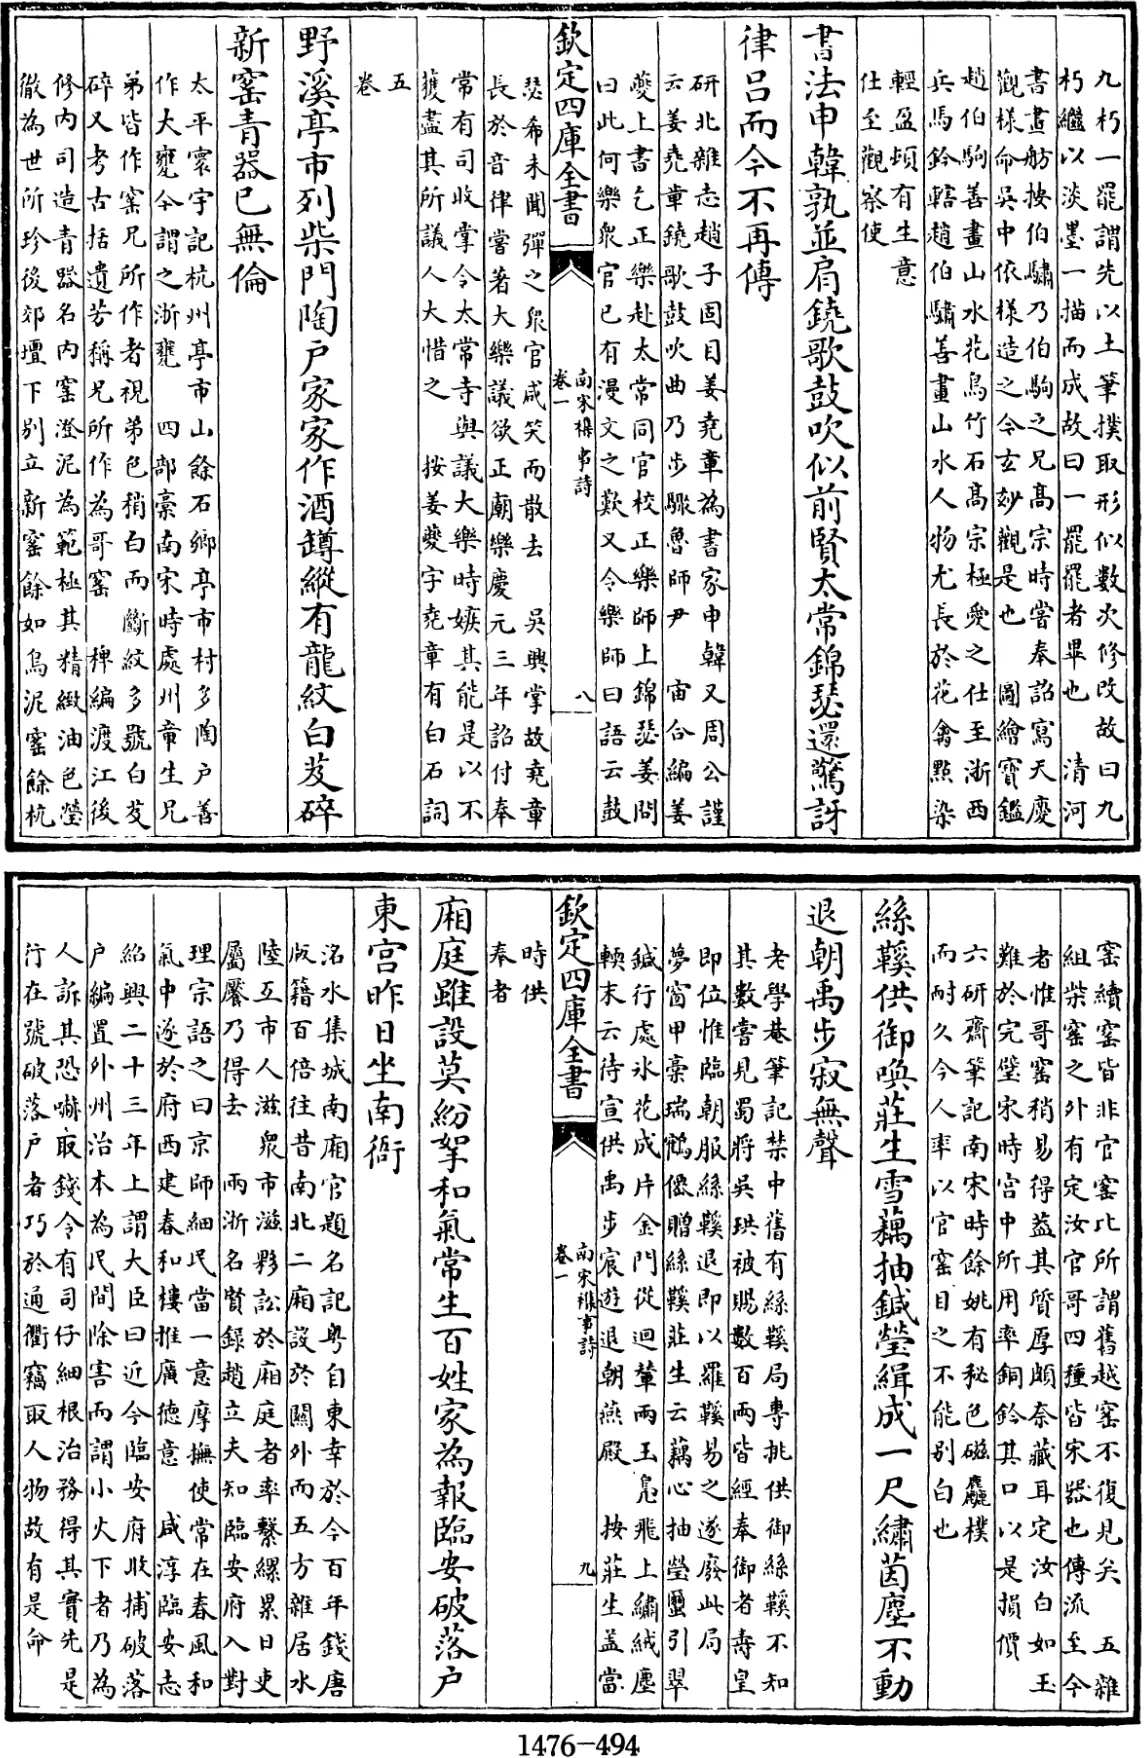 九朽一罷謂先以土筆撲取形似數次修改故曰九
朽繼以淡墨一描而成故曰一罷罷者畢也　清河
書畫舫按伯驌乃伯駒之兄髙宗時嘗奉詔寫天慶
觀様命吳中依様造之今玄妙觀是也　圖繪寳鑑
趙伯駒善畫山水花鳥竹石髙宗極愛之仕至浙西
兵馬鈐轄趙伯驌善畫山水人物尤長於花禽㸃染
輕盈頓有生意
仕至觀察使
書法申韓孰並肩鐃歌鼓吹似前賢太常錦瑟還驚訝
律吕而今不再傳
研北雜志趙子固目姜堯章為書家申韓又周公謹
云姜堯章鐃歌鼓吹曲乃步驟魯師尹　宙合編姜
䕫上書乞正樂赴太常同官校正樂師上錦瑟姜問
曰此何樂衆官已有漫文之歎又令樂師曰語云鼓
欽定四庫全書
南宋襍事詩
卷一
八
瑟希未聞彈之衆官咸笑而散去　吳興掌故堯章
長於音律嘗著大樂議欲正廟樂慶元三年詔付奉
常有司收掌令太常寺與議大樂時嫉其能是以不
獲盡其所議人大惜之　按姜䕫字堯章有白石詞
五
卷
野溪亭市列柴門陶户家家作酒罇縱有龍紋白芨碎
新窑青器已無倫
太平寰宇記杭州亭市山餘石鄉亭市村多陶户善
作大甕今謂之浙甕　四部稾南宋時處州章生兄
弟皆作窑兄所作者視弟色稍白而斷紋多號白芨
碎又考古括遺芳稱兄所作為哥窑　稗編渡江後
修内司造青器名内窑澄泥為範極其精緻油色瑩
徹為世所珍後郊壇下别立新窑餘如烏泥窑餘杭
窑續窑皆非官窑比所謂舊越窑不復見矣　五雜
組柴窑之外有定汝官哥四種皆宋器也傳流至今
者惟哥窑稍易得葢其質厚頗奈藏耳定汝白如玉
難於完璧宋時宫中所用率銅鈐其口以是損價
六研齋筆記南宋時餘姚有秘色磁麤樸
而耐久今人率以官窑目之不能别白也
絲鞵供御喚莊生雪藕抽鍼瑩緝成一尺繡茵塵不動
退朝禹步寂無聲
老學菴筆記禁中舊有絲鞵局專挑供御絲鞵不知
其數嘗見蜀將吳珙被賜數百兩皆經奉御者壽皇
即位惟臨朝服絲鞵退即以羅鞵易之遂廢此局
夢窗甲稾瑞鶴僊贈絲鞵莊生云藕心抽瑩璽引翠
鍼行處氷花成片金門從迴輦兩玉鳬飛上繡絨塵
輭末云待宣供禹步宸遊退朝燕殿　按莊生葢當
欽定四庫全書
南宋襍事詩
卷一
九
時供
奉者
廂庭雖設莫紛拏和氣常生百姓家為報臨安破落户
東宫昨日坐南衙
洺水集城南廂官題名記粤自東幸於今百年錢唐
版籍百倍往昔南北二廂設於闗外而五方雜居水
陸互市人滋衆市滋夥訟於廂庭者率繫縲累日吏
屬饜乃得去　兩浙名賢録趙立夫知臨安府入對
理宗語之曰京師細民當一意摩撫使常在春風和
氣中遂於府西建春和樓推廣徳意　咸淳臨安志
紹興二十三年上謂大臣曰近今臨安府收捕破落
户編置外州治本為民間除害而謂小火下者乃為
人訴其恐嚇取錢令有司仔細根治務得其實先是
行在號破落户者巧於通衢竊取人物故有是命
1476—494